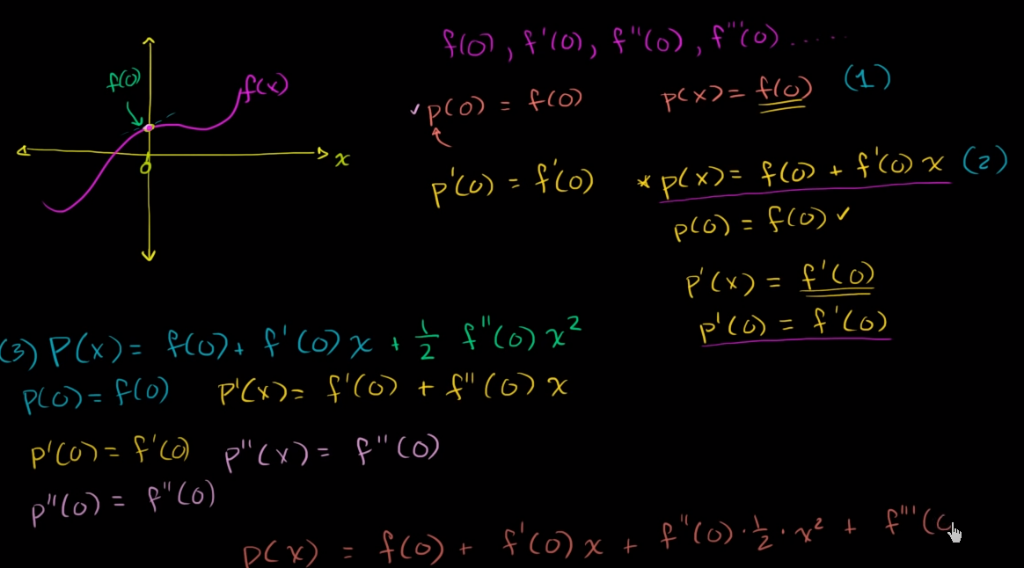 f(0), f'(0), f''(0), f'''(0) .....
f(0)
f(x)
0
x
p(0) = f(0)
p(x) = f(0) (1)
p'(0) = f'(0)
* p(x) = f(0) + f'(0) x (2)
p(0) = f(0) ✓
p'(x) = f'(0)
p'(0) = f'(0)
(3) P(x) = f(0) + f'(0) x + 1/2 f''(0) x²
P(0) = f(0)
P'(x) = f'(0) + f''(0) x
P'(0) = f'(0)
P''(x) = f''(0)
P''(0) = f''(0)
p(x) = f(0) + f'(0) x + f''(0) · 1/2 · x² + f'''(0